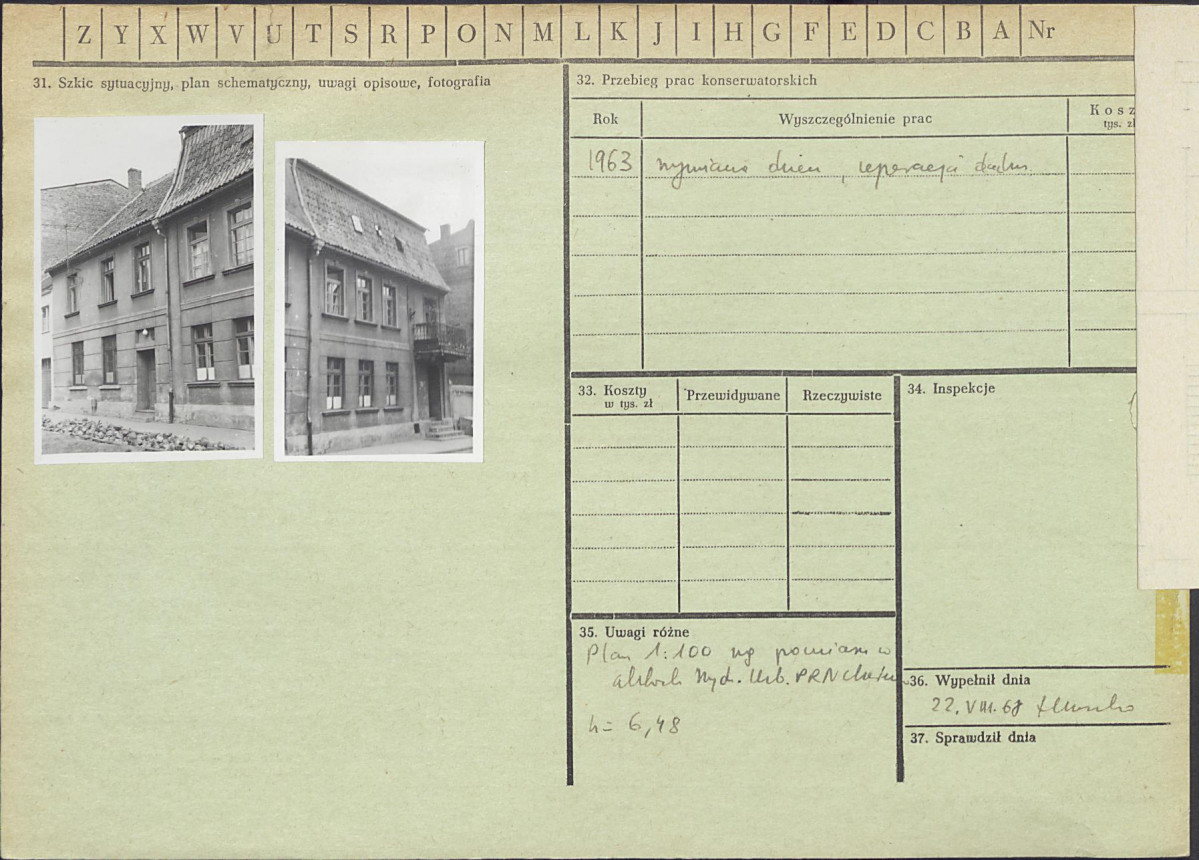 Z Y X W V U T S R P O N M L K J I H G F E D C B A Nr
31. Szkic sytuacyjny, plan schematyczny, uwagi opisowe, fotografia
32. Przebieg prac konserwatorskich
Rok Wyszczególnienie prac Kosz
tys. zł
1963 wymiana okien, reperacja dachu
33. Koszty
w tys. zł
Przewidywane Rzeczywiste
34. Inspekcje
35. Uwagi różne
Plan 1:100 wg pomiaru w
aktach Wyd. Urb. PRN
h = 6,48
36. Wypełnił dnia
22.VIII.68
37. Sprawdził dnia